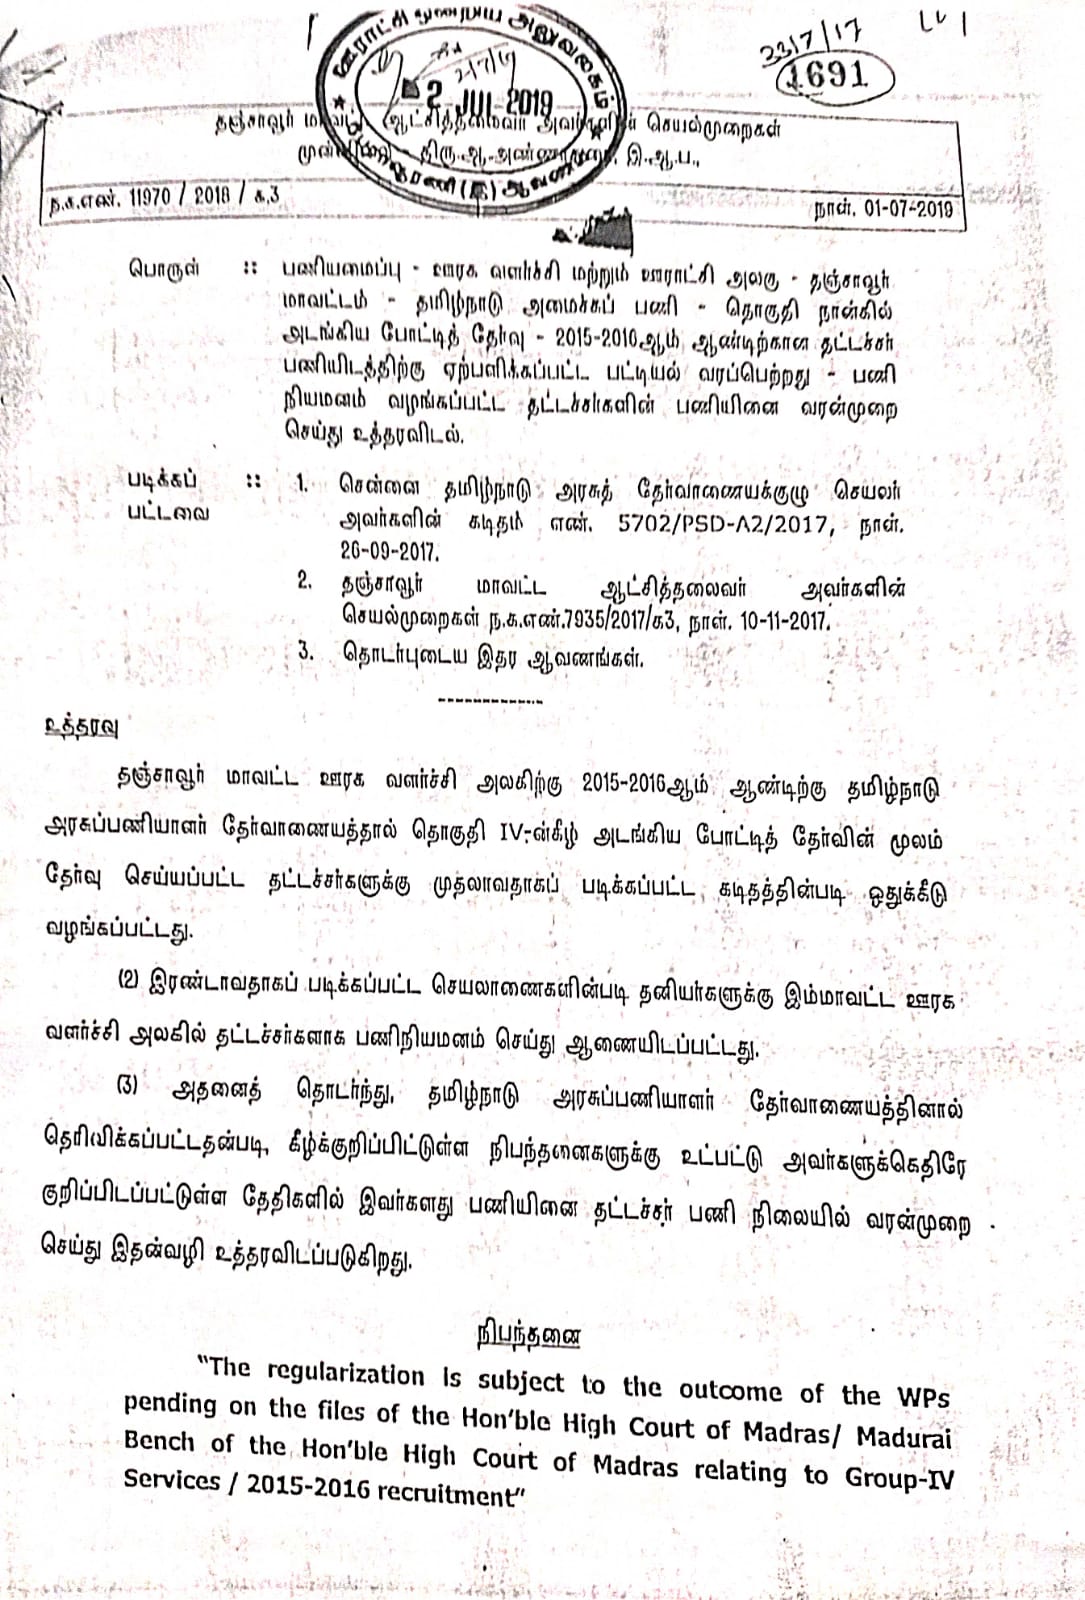 23/7/17
1691
ஊராட்சி ஒன்றிய அலுவலகம்
2 JUL 2019
தஞ்சாவூர் ஆட்சித்தலைவர் அவர்களின் செயல்முறைகள்
முன்னிலை திரு.ஆ.அண்ணாதுரை, இ.ஆ.ப.,
ந.க.எண். 11970 / 2018 / க.3 நாள். 01-07-2019
பொருள் :: பணியமைப்பு - ஊரக வளர்ச்சி மற்றும் ஊராட்சி அலகு - தஞ்சாவூர்
மாவட்டம் - தமிழ்நாடு அமைச்சுப் பணி - தொகுதி நான்கில்
அடங்கிய போட்டித் தேர்வு - 2015-2016ஆம் ஆண்டிற்கான தட்டச்சர்
பணியிடத்திற்கு ஏற்பளிக்கப்பட்ட பட்டியல் வரப்பெற்றது - பணி
நியமனம் வழங்கப்பட்ட தட்டச்சர்களின் பணியினை வரன்முறை
செய்து உத்தரவிடல்.
படிக்கப் :: 1. சென்னை தமிழ்நாடு அரசுத் தேர்வாணையக்குழு செயலர்
பட்டவை அவர்களின் கடிதம் எண். 5702/PSD-A2/2017, நாள்.
26-09-2017.
2. தஞ்சாவூர் மாவட்ட ஆட்சித்தலைவர் அவர்களின்
செயல்முறைகள் ந.க.எண்.7935/2017/க3, நாள். 10-11-2017.
3. தொடர்புடைய இதர ஆவணங்கள்.
------------
உத்தரவு
தஞ்சாவூர் மாவட்ட ஊரக வளர்ச்சி அலகிற்கு 2015-2016ஆம் ஆண்டிற்கு தமிழ்நாடு
அரசுப்பணியாளர் தேர்வாணையத்தால் தொகுதி IV-ன்கீழ் அடங்கிய போட்டித் தேர்வின் மூலம்
தேர்வு செய்யப்பட்ட தட்டச்சர்களுக்கு முதலாவதாகப் படிக்கப்பட்ட கடிதத்தின்படி ஒதுக்கீடு
வழங்கப்பட்டது.
(2) இரண்டாவதாகப் படிக்கப்பட்ட செயலாணைகளின்படி தனியர்களுக்கு இம்மாவட்ட ஊரக
வளர்ச்சி அலகில் தட்டச்சர்களாக பணிநியமனம் செய்து ஆணையிடப்பட்டது.
(3) அதனைத் தொடர்ந்து, தமிழ்நாடு அரசுப்பணியாளர் தேர்வாணையத்தினால்
தெரிவிக்கப்பட்டதன்படி, கீழ்க்குறிப்பிட்டுள்ள நிபந்தனைகளுக்கு உட்பட்டு அவர்களுக்கெதிரே
குறிப்பிடப்பட்டுள்ள தேதிகளில் இவர்களது பணியினை தட்டச்சர் பணி நிலையில் வரன்முறை
செய்து இதன்வழி உத்தரவிடப்படுகிறது.
நிபந்தனை
"The regularization is subject to the outcome of the WPs
pending on the files of the Hon'ble High Court of Madras/ Madurai
Bench of the Hon'ble High Court of Madras relating to Group-IV
Services / 2015-2016 recruitment"